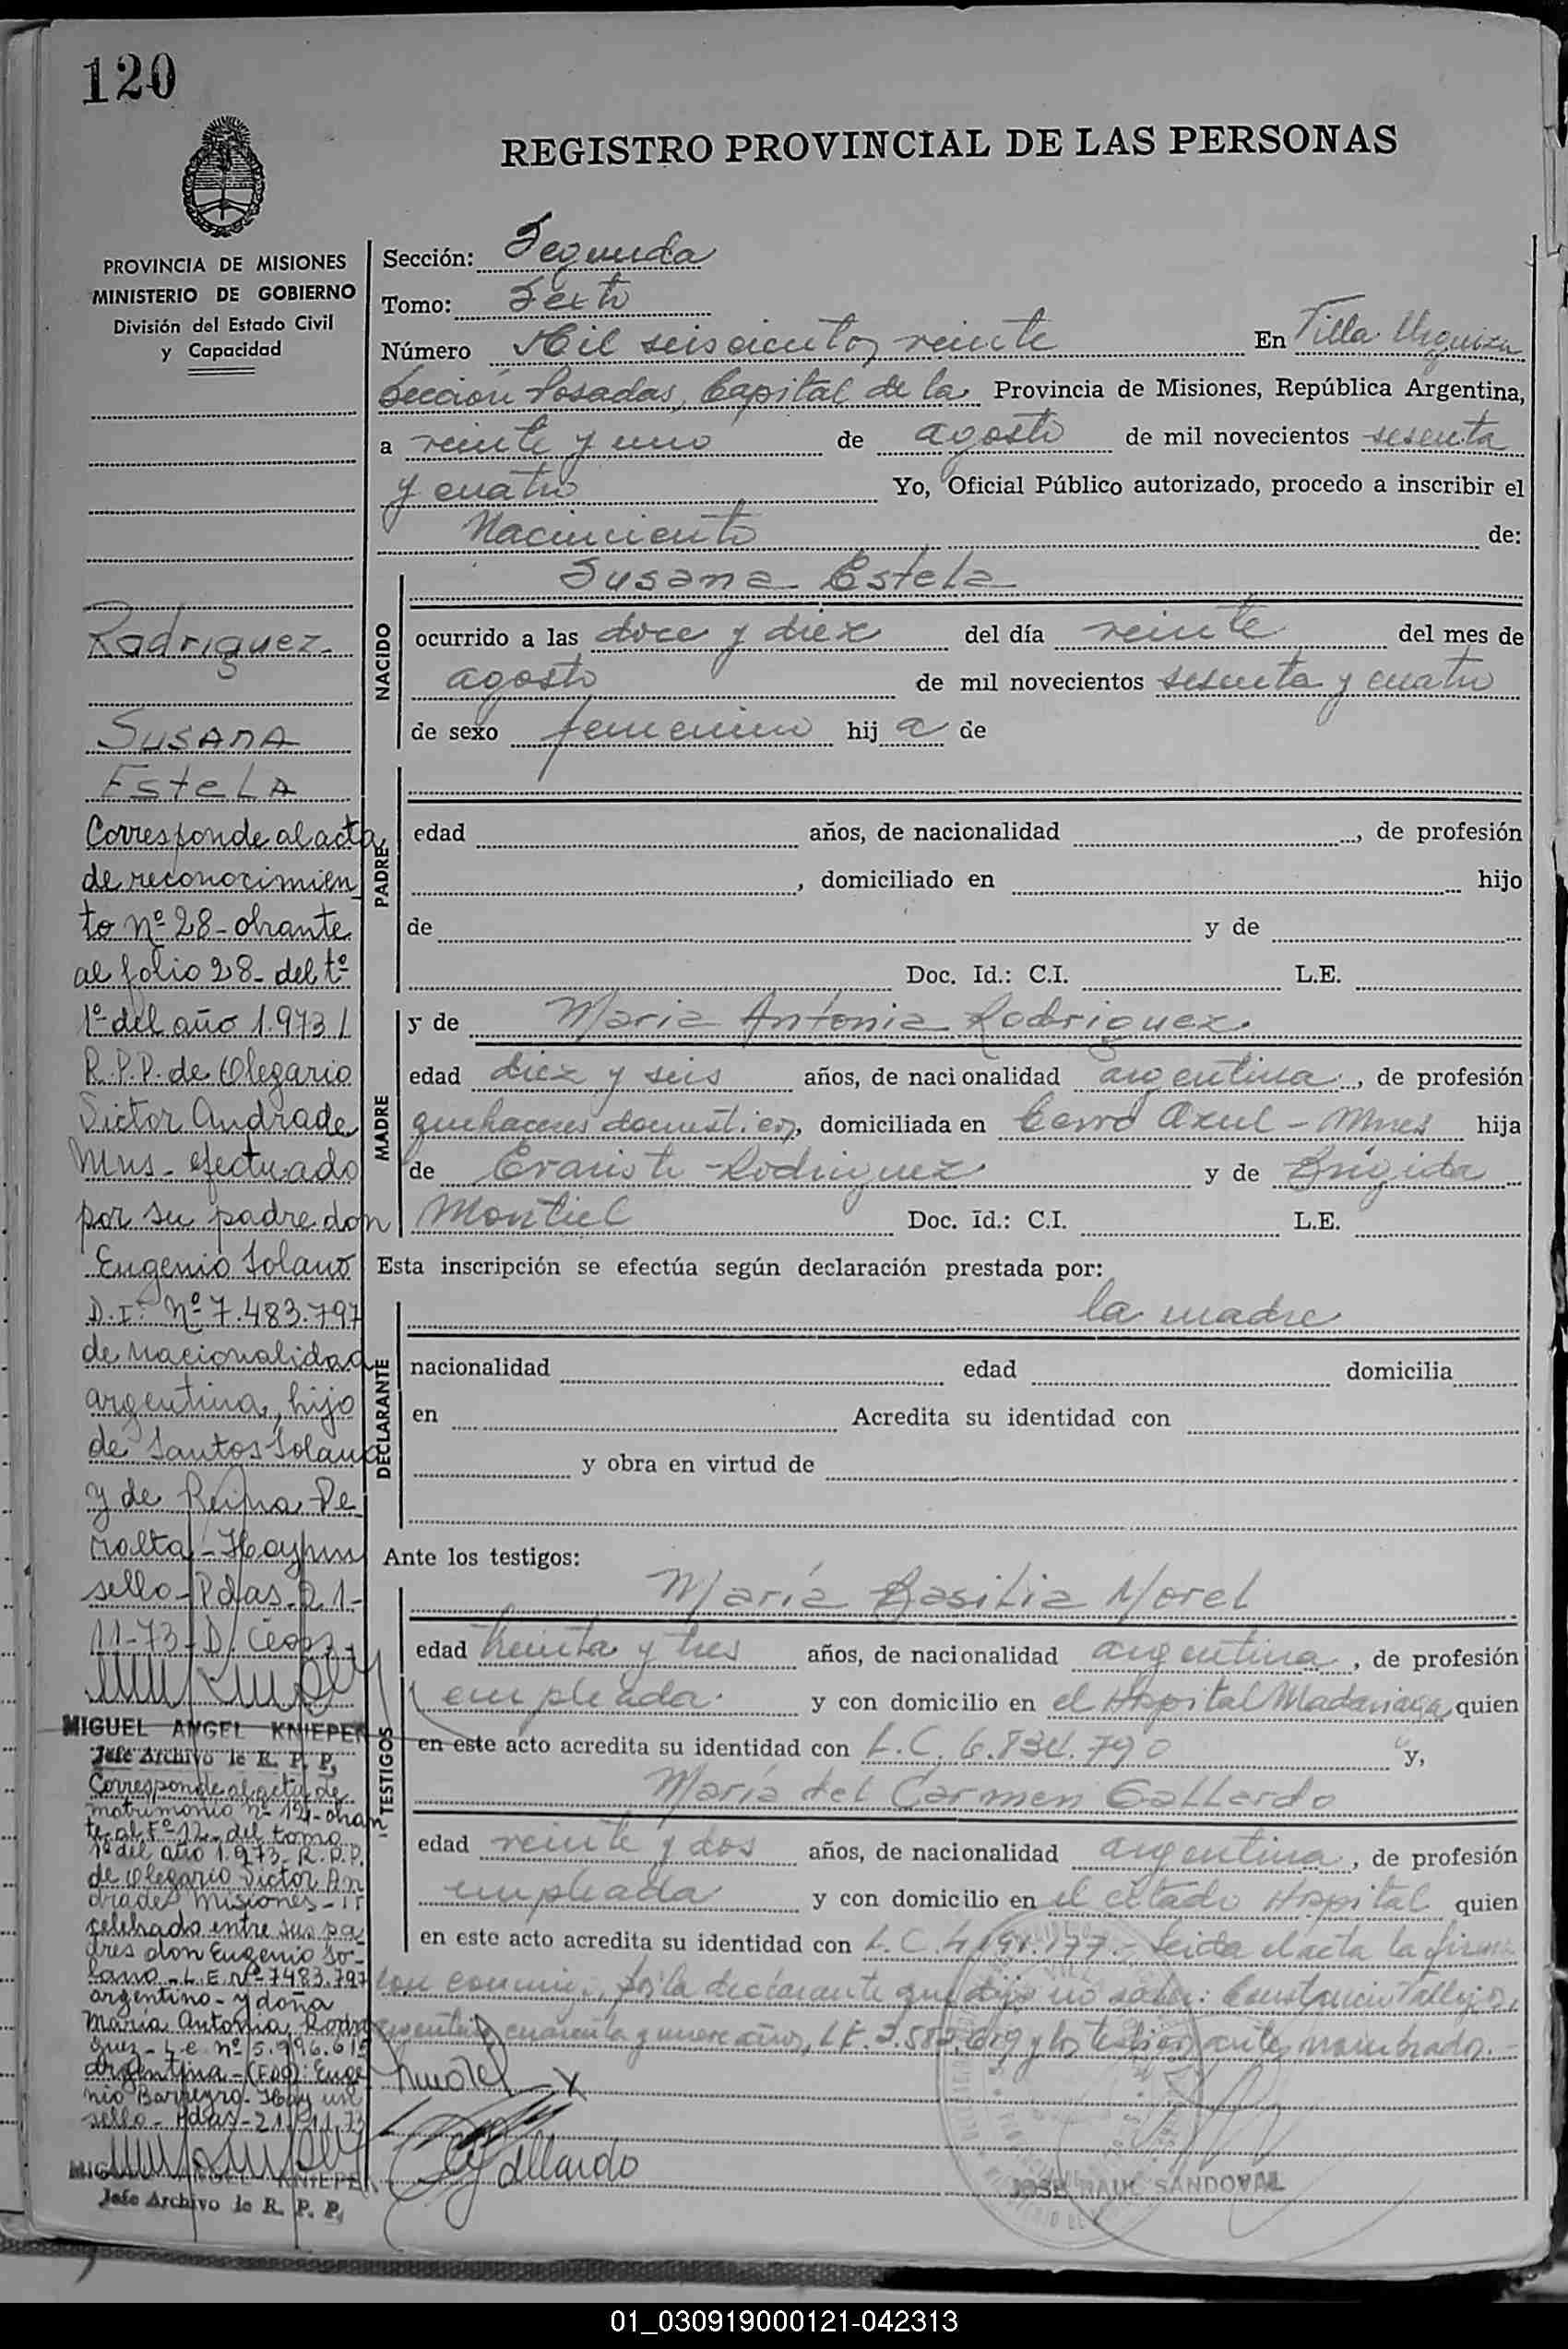 120
REGISTRO PROVINCIAL DE LAS PERSONAS
PROVINCIA DE MISIONES
MINISTERIO DE GOBIERNO
División del Estado Civil
y Capacidad
Rodriguez
Susana
Estela
Corresponde al acta
de reconocimien
to nº 28 - obrante
al folio 28 - del tº
1º del año 1.973 /
R.P.P. de Olegario
Victor Andrade
Mns - efectuado
por su padre don
Eugenio Solano
D.I. Nº 7.483.797
de nacionalidad
argentina, hijo
de Santos Solano
y de Reina Pe
ralta - Hay un
sello - Pdas. 21-
11-73 - D.
MIGUEL ANGEL KNIEPER
Jefe Archivo de R. P. P.
Corresponde al acta de
matrimonio nº 12 - obran
te al Fº 12 - del tomo
1º del año 1.973 - R.P.P.
de Olegario Victor An
drade Misiones -
celebrado entre sus pa
dres don Eugenio So-
lano - L.E. nº 7483.797
argentino - y doña
María Antonia Rodri
guez - L.C. nº 5.996.615
argentina - (Fdo): Euge
nio Barreyro. Hay un
sello - Pdas - 21-11-73
MIGUEL ANGEL KNIEPER
Jefe Archivo de R. P. P.
Sección: Segunda
Tomo: Sexto
Número Mil seiscientos veinte En Villa Urquiza
Sección Posadas, Capital de la Provincia de Misiones, República Argentina,
a veinte y uno de agosto de mil novecientos sesenta
y cuatro Yo, Oficial Público autorizado, procedo a inscribir el
Nacimiento de:
NACIDO
Susana Estela
ocurrido a las doce y diez del día veinte del mes de
agosto de mil novecientos sesenta y cuatro
de sexo femenino hij a de
PADRE
edad años, de nacionalidad , de profesión
, domiciliado en hijo
de y de
Doc. Id.: C.I. L.E.
MADRE
y de Maria Antonia Rodriguez.
edad diez y seis años, de nacionalidad argentina, de profesión
quehaceres domesticos, domiciliada en Cerro Azul - Mnes hija
de Evaristo Rodriguez y de Brígida
Montiel Doc. Id.: C.I. L.E.
Esta inscripción se efectúa según declaración prestada por:
DECLARANTE
la madre
nacionalidad edad domicilia
en Acredita su identidad con
y obra en virtud de
Ante los testigos:
TESTIGOS
María Basilia Morel
edad treinta y tres años, de nacionalidad argentina, de profesión
empleada y con domicilio en el Hospital Madariaga quien
en este acto acredita su identidad con L.C. 6.834.790 y,
María del Carmen Gallardo
edad veinte y dos años, de nacionalidad argentina, de profesión
empleada y con domicilio en el citado Hospital quien
en este acto acredita su identidad con L.C. 4.191.177.- Leida el acta la firman
con conmigo, por la declarante que dijo no saber: Constancio Vallejos,
argentino, cuarenta y nueve años, L.E. 2.582.619 y los testigos antes nombrados. -
Morel
Gallardo
JOSE RAUL SANDOVAL
01_030919000121-042313